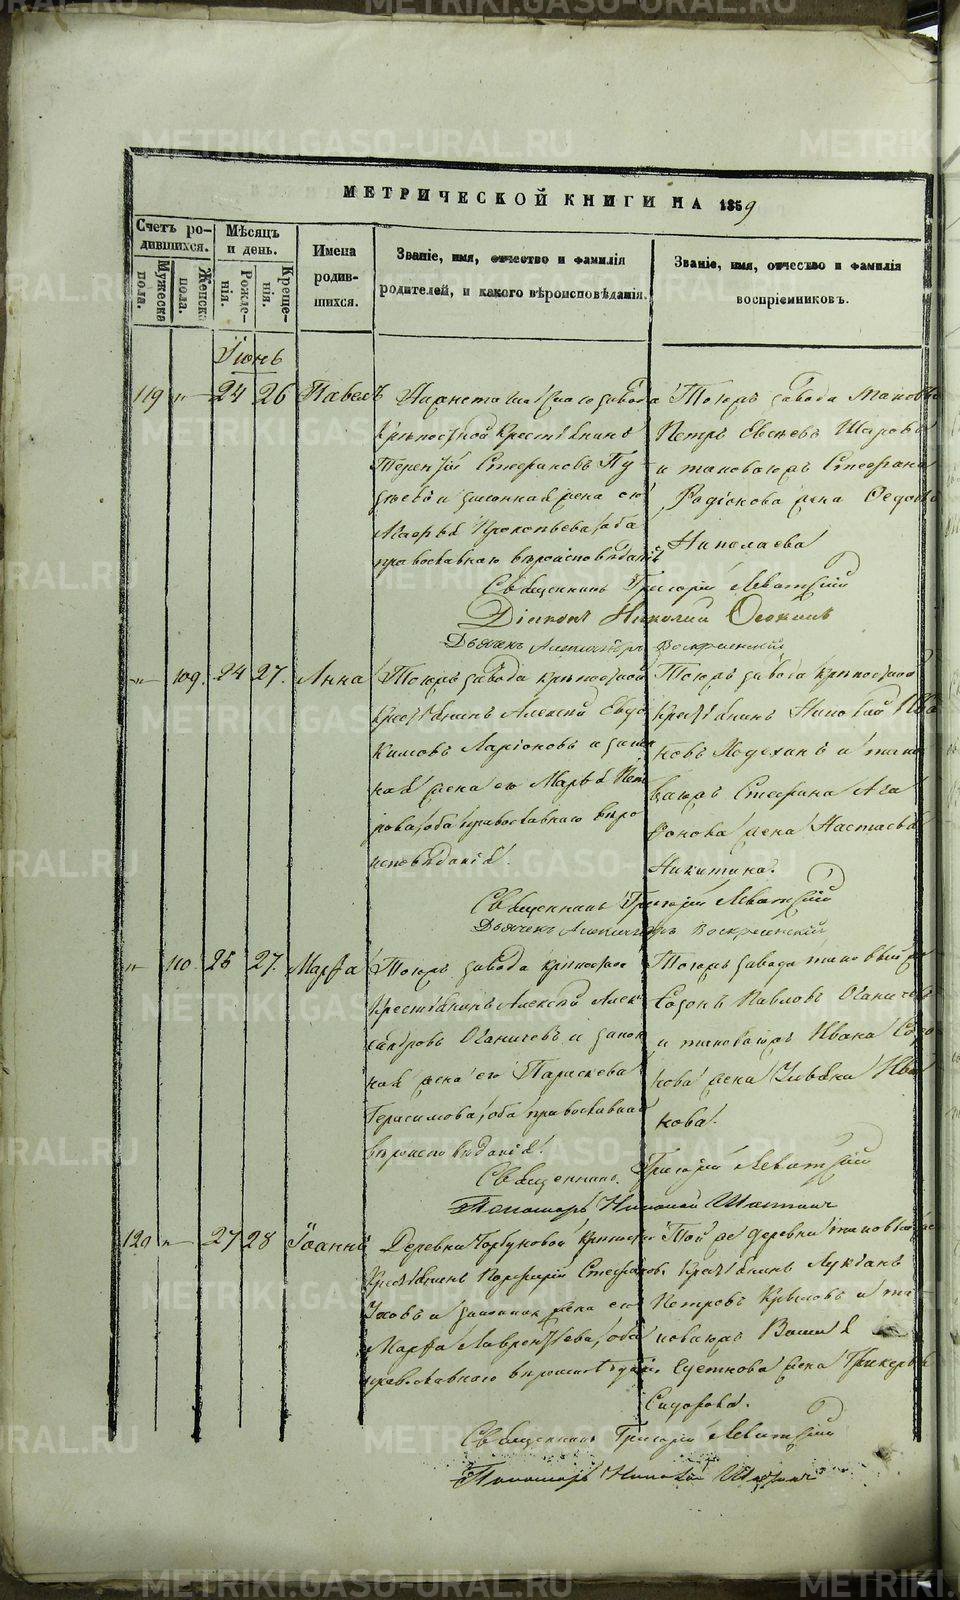 МЕТРИЧЕСКОЙ КНИГИ НА 1859
Счетъ родившихся.
Мужеска пола.
Женска пола.
Мѣсяцъ и день.
Рожденія.
Крещенія.
Имена родившихся.
Званіе, имя, отчество и фамилія
родителей, и какого вѣроисповѣданія.
Званіе, имя, отчество и фамилія
воспріемниковъ.
Іюнь
119 " 24 26 Павелъ
завода
крѣпостной крестьянинъ
Терентій Стефановъ
и законная жена его
Марья Прокопьева, оба
православнаго вѣроисповѣданія
Тогожъ завода таковъ
Петръ Евсѣевъ Шаровъ
и таковагожъ Стефана
Родіонова жена Федосья
Николаева
Священникъ Григорій Левитскій
Діаконъ Николай
Дьячекъ Александръ Воскресенскій
" 109. 24 27. Анна
Тогожъ завода крѣпостной
крестьянинъ Алексѣй Евдо
кимовъ Ларіоновъ и закон
ная жена его Марья Пет
рова, оба православнаго вѣро
исповѣданія.
Тогожъ завода крѣпостной
крестьянинъ Николай Ива
новъ и тако
вагожъ Стефана Ага
фонова жена Настасья
Никитина.
Священникъ Григорій Левитскій
Дьячекъ Александръ Воскресенскій
" 110. 25 27. Марфа
Тогожъ завода крѣпостной
крестьянинъ Алексѣй Алек
сандровъ и закон
ная жена его Параскева
Герасимова, оба православнаго
вѣроисповѣданія.
Тогожъ завода таковый же
Созонъ Павловъ
и таковагожъ Ивана
жена Ульяна Ива
нова.
Священникъ Григорій Левитскій
Пономарь Николай
120 " 27 28 Іоаннъ
Деревни крѣпостной
крестьянинъ Порфирій Стефановъ
и законная жена его
Марфа Лаврентьева, оба
православнаго вѣроисповѣданія
Той же деревни таковый же
крестьянинъ Лукьянъ
Петровъ Крыловъ и та
ковагожъ Василья
жена Гликерья
Сидорова.
Священникъ Григорій Левитскій
Пономарь Николай
METRIKI.GASO-URAL.RU